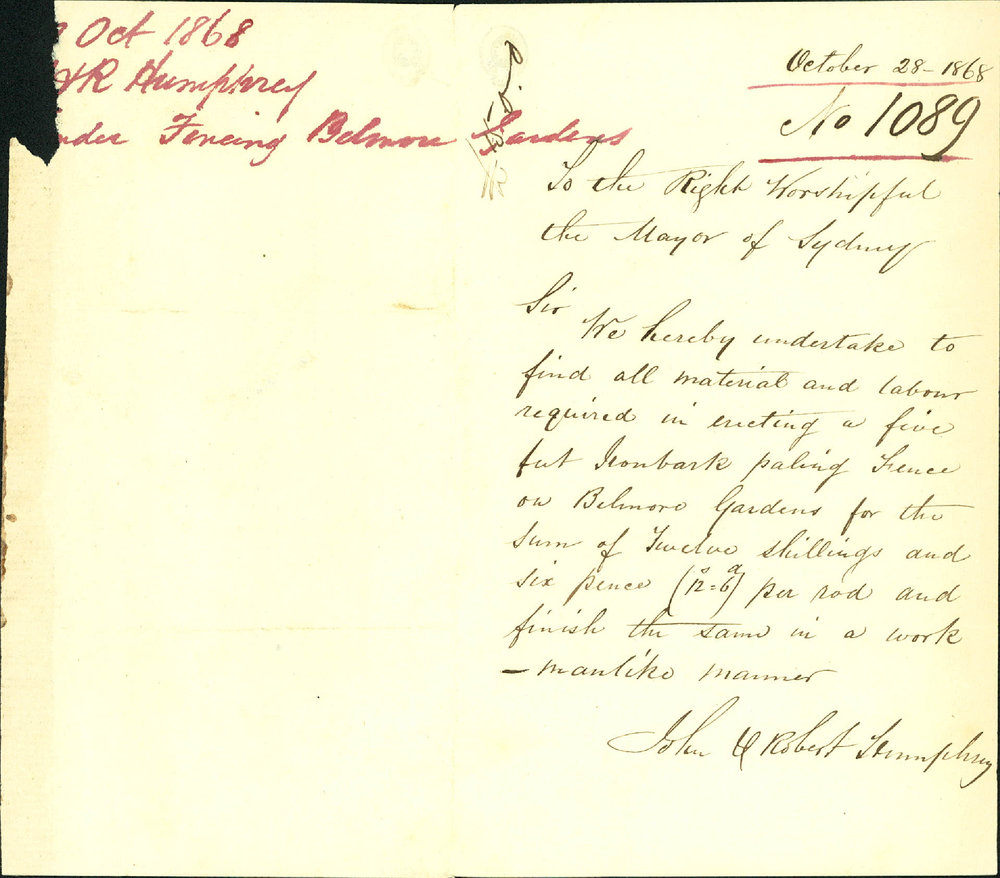 Oct 1868
&R Humphrey
nder Fencing Belmore Gardens
October 28 - 1868
No 1089
To the Right Worshipful
the Mayor of Sydney
Sir
We hereby undertake to
find all material and labour
required in erecting a five
feet Ironbark paling Fence
on Belmore Gardens for the
sum of Twelve shillings and
six pence (12s=6d) per rod and
finish the same in a work
-manlike manner
John & Robert Humphrey